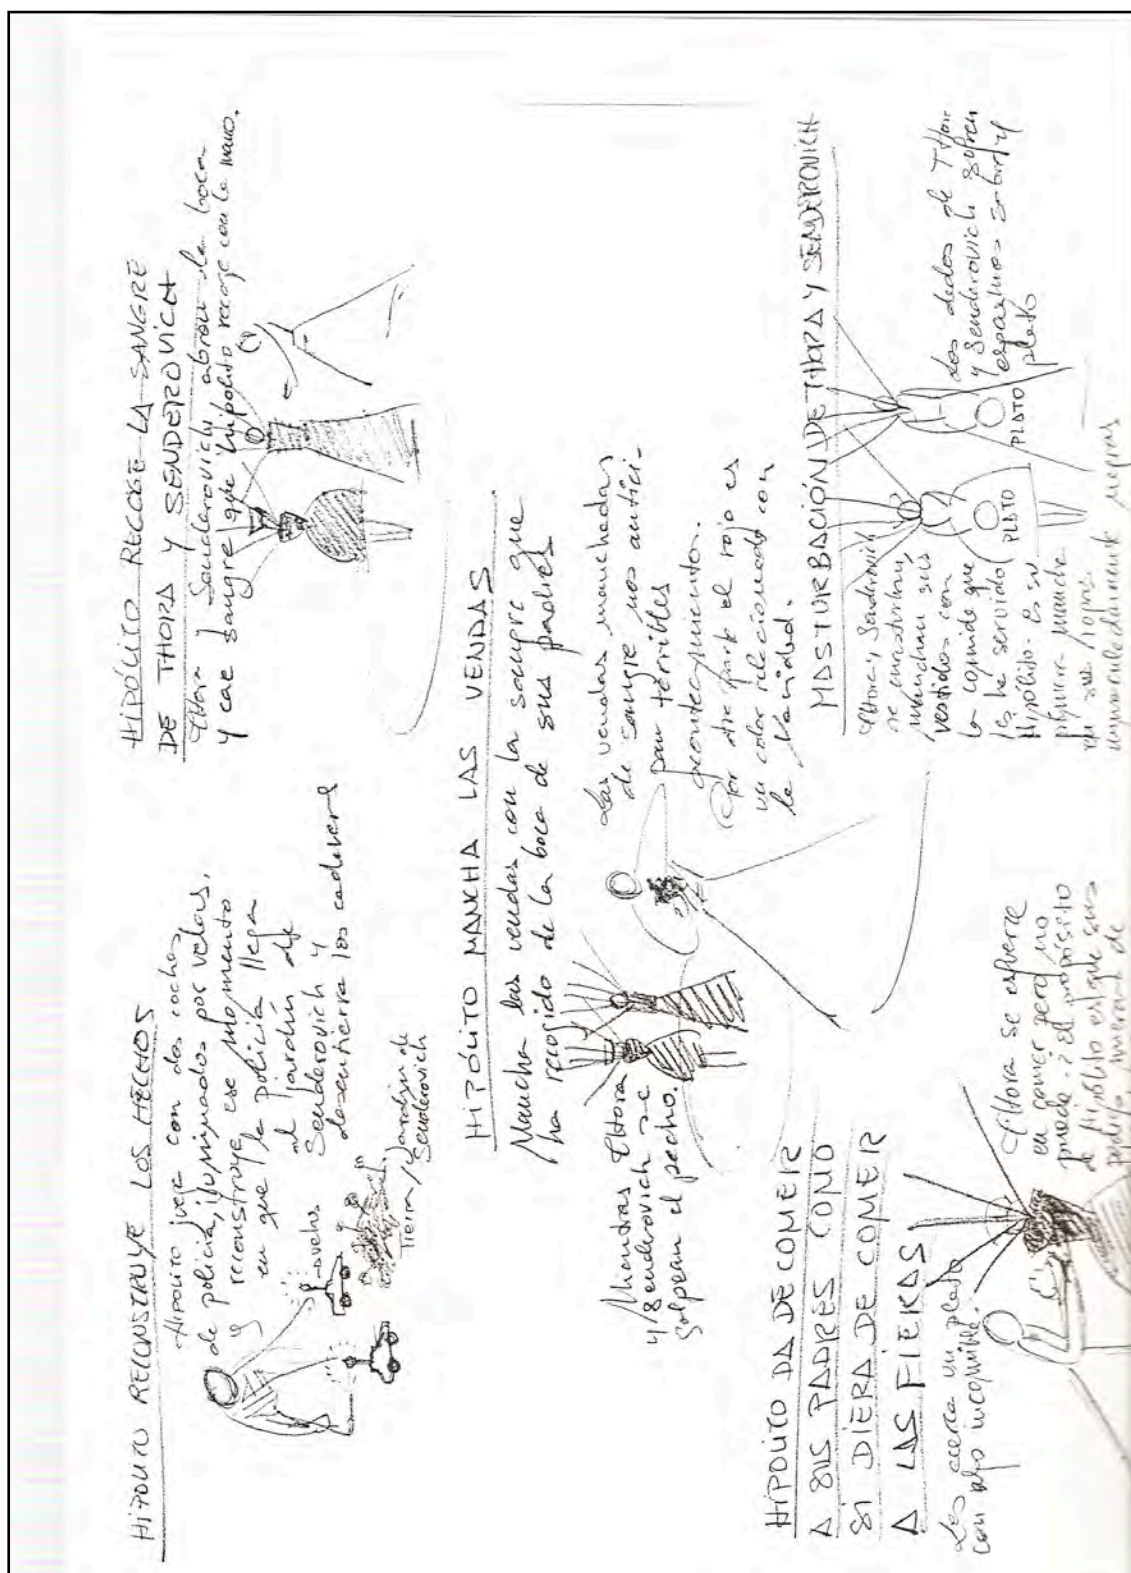 HIPÓLITO RECONSTRUYE LOS HECHOS
Hipólito juega con dos coches
de policía, iluminados por velas,
y reconstruye ese momento
en que la policía llega
al jardín de
Senderovich y
desentierra los cadáveres
velas
Tierra/Jardín de
Senderovich
HIPÓLITO RECOGE LA SANGRE
DE THORA Y SENDEROVICH
Thora y Senderovich abren la boca
y cae sangre que Hipólito recoge con la mano.
HIPÓLITO MANCHA LAS VENDAS
Mancha las vendas con la sangre que
ha recogido de la boca de sus padres
Mientras Thora
y Senderovich se
golpean el pecho.
Las vendas manchadas
de sangre nos antici-
pan terribles
acontecimientos.
Por otra parte el rojo es
un color relacionado con
la vanidad.
HIPÓLITO DA DE COMER
A SUS PADRES COMO
SI DIERA DE COMER
A LAS FIERAS
Les acerca un plato
con algo incomible.
Thora se esfuerza
en comer pero no
puede. El propósito
de Hipólito es que sus
padres mueran de
MASTURBACIÓN DE THORA Y SENDEROVICH
Thora y Senderovich
se masturban,
manchan sus
vestidos con
la comida que
les ha servido
Hipólito. Es su
primera mancha
en sus ropas
inmaculadamente negras
PLATO
PLATO
Los dedos de Thora
y Senderovich sufren
espasmos sobre el
plato